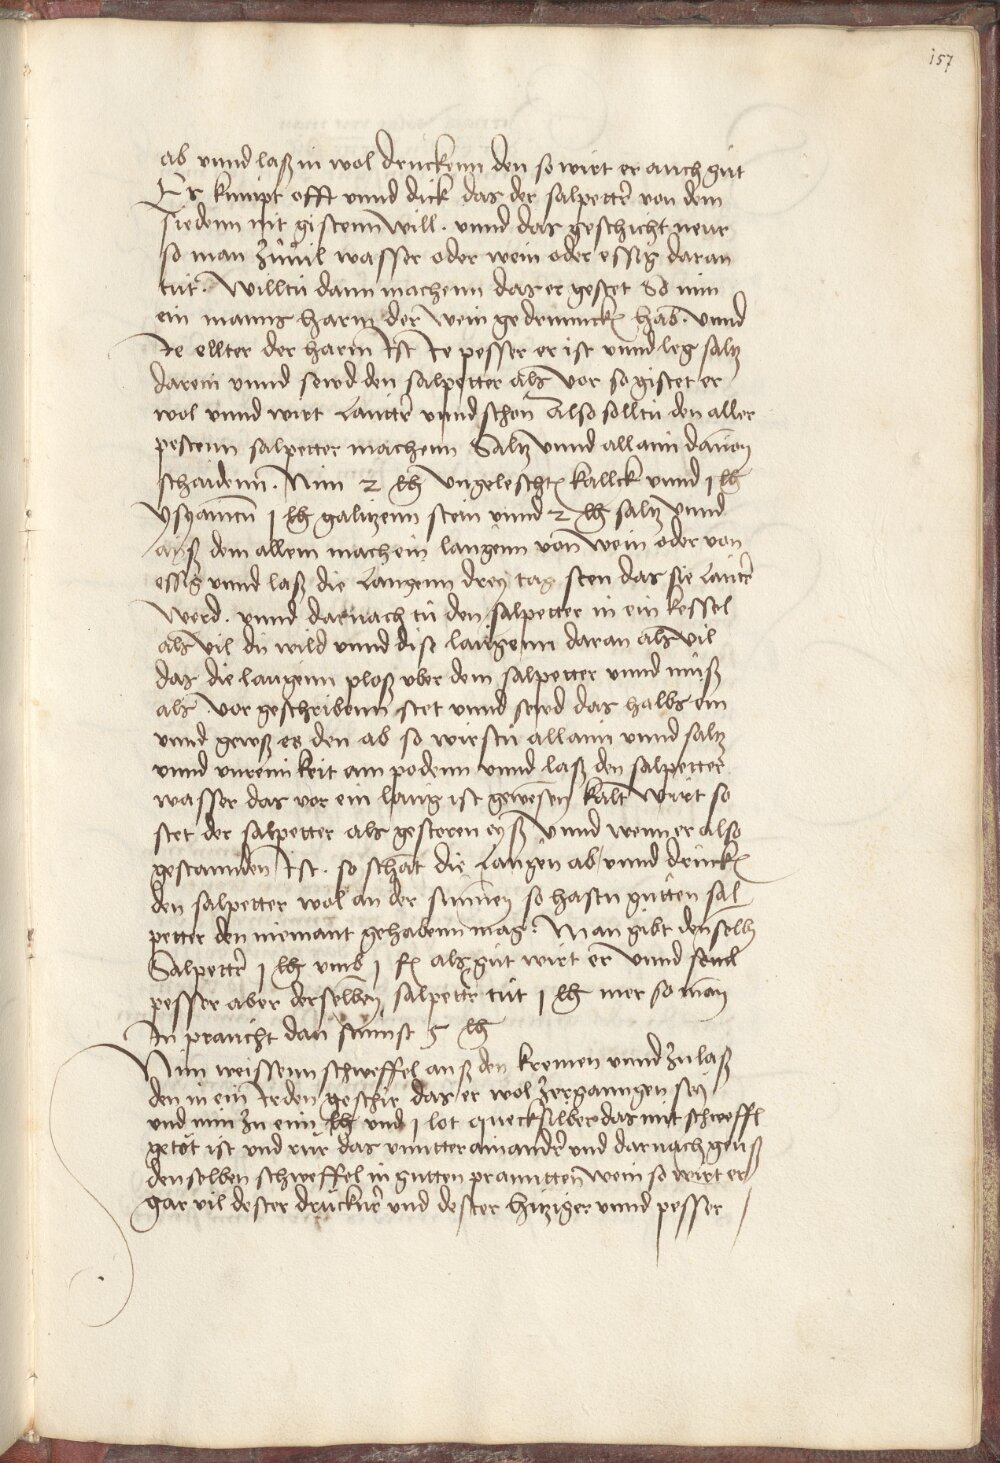 157
ab vnnd laß in wol druckenn den so wirt er auch gut
Es kumpt offt vnnd dick das der salpetter von dem
siedenn nit gistenn will. vnnd das geschicht neur
so man zuuil wasser oder wein oder essig daran
tut. Willtu dann machenn das er gestet So nim
ein manns harm der wein gedrunnckn hab. vnnd
Je ellter der harm Ist Je pesser er ist vnnd leg saltz
darein vnnd sewd den salpetter als vor so gistet er
wol vnnd wirt Lautter vnnd schon Also solltu den aller
pestenn salpetter machenn Saltz vnnd allaun dauon
schaidenn. Nim 2 lb vngeleschtn kallck vnnd 1 lb
1 lb galitzenn stein vnnd 2 lb saltz vnnd
auß dem allem mach ein laugenn von wein oder von
essig vnnd laß die Laugenn drey tag sten das sie Lautter
werd. vnnd darnach tu den salpetter in ein kessel
als vil du wild vnnd dise laugenn daran als vil
das die laugenn ploß vber dem salpetter vnnd muß
als vor geschribenn stet vnnd sewd das halbs ein
vnnd gewß es den ab so wirstu allaun vnnd saltz
vnnd vnreinikeit am podenn vnnd laß den salpetter
wasser das vor ein laug ist gewesen kalt wirt so
stet der salpetter als gefroren eyß vnnd wenn er also
gestannden Ist. so schüt die Laugen ab vnnd druckn
den salpetter wol an der sunnen so hastu gutten sal
petter den niemant gehabenn mag. Man gibt denselbn
Salpetter 1 lb vmb 1 fl als gut wirt er vnnd
pesser aber derselben salpetter tut 1 lb mer so man
In praucht dan sunnst 5 lb
Nim weissenn schweffel auß den kremen vnnd zu laß
den in ein Irden geschir das er wol zergangen sey
vnd nim zu eim lb vnd 1 lot quecksilber das mit schweffl
getöt ist vnd rür das vnntter ainander vnd darnach geuß
denselben schweffel in gutten pranntten wein so wirt er
gar vil dester druckner vnd dester hitziger vnnd pesser